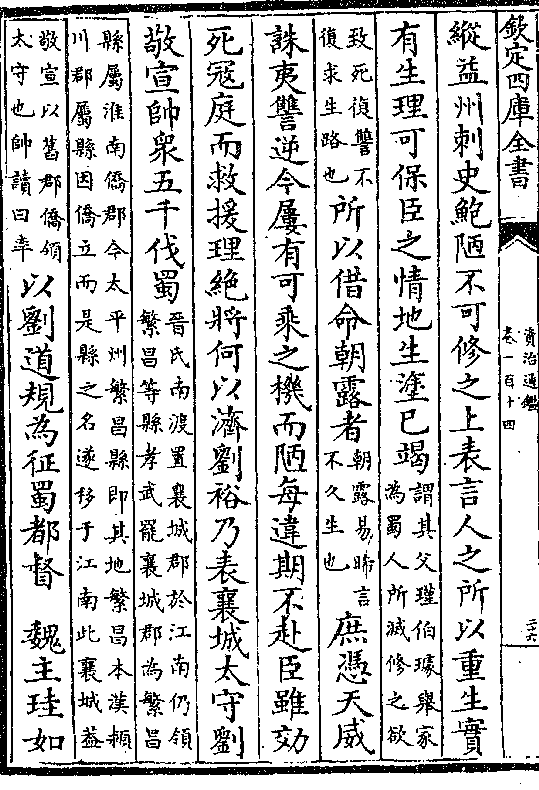 欽定四庫全書
資治通鑑
卷一百十四
二十六
縱益州刺史鮑陋不可修之上表言人之所以重生實
有生理可保臣之情地生塗已竭
謂其父瑾伯璩舉家
為蜀人所滅修之欲
致死復讐不
復求生路也
所以借命朝露者
朝露易晞言
不久生也
庶憑天威
誅夷讐逆今屢有可乘之機而陋每違期不赴臣雖効
死寇庭而救援理絶將何以濟劉裕乃表襄城太守劉
敬宣帥衆五千伐蜀
晉氏南渡置襄城郡於江南仍領
繁昌等縣孝武罷襄城郡為繁昌
縣屬淮南僑郡今太平州繁昌縣即其地繁昌本漢潁
川郡屬縣因僑立而是縣之名遂移于江南此襄城葢
敬宣以舊郡僑領
太守也帥讀曰率
以劉道規為征蜀都督　魏主珪如